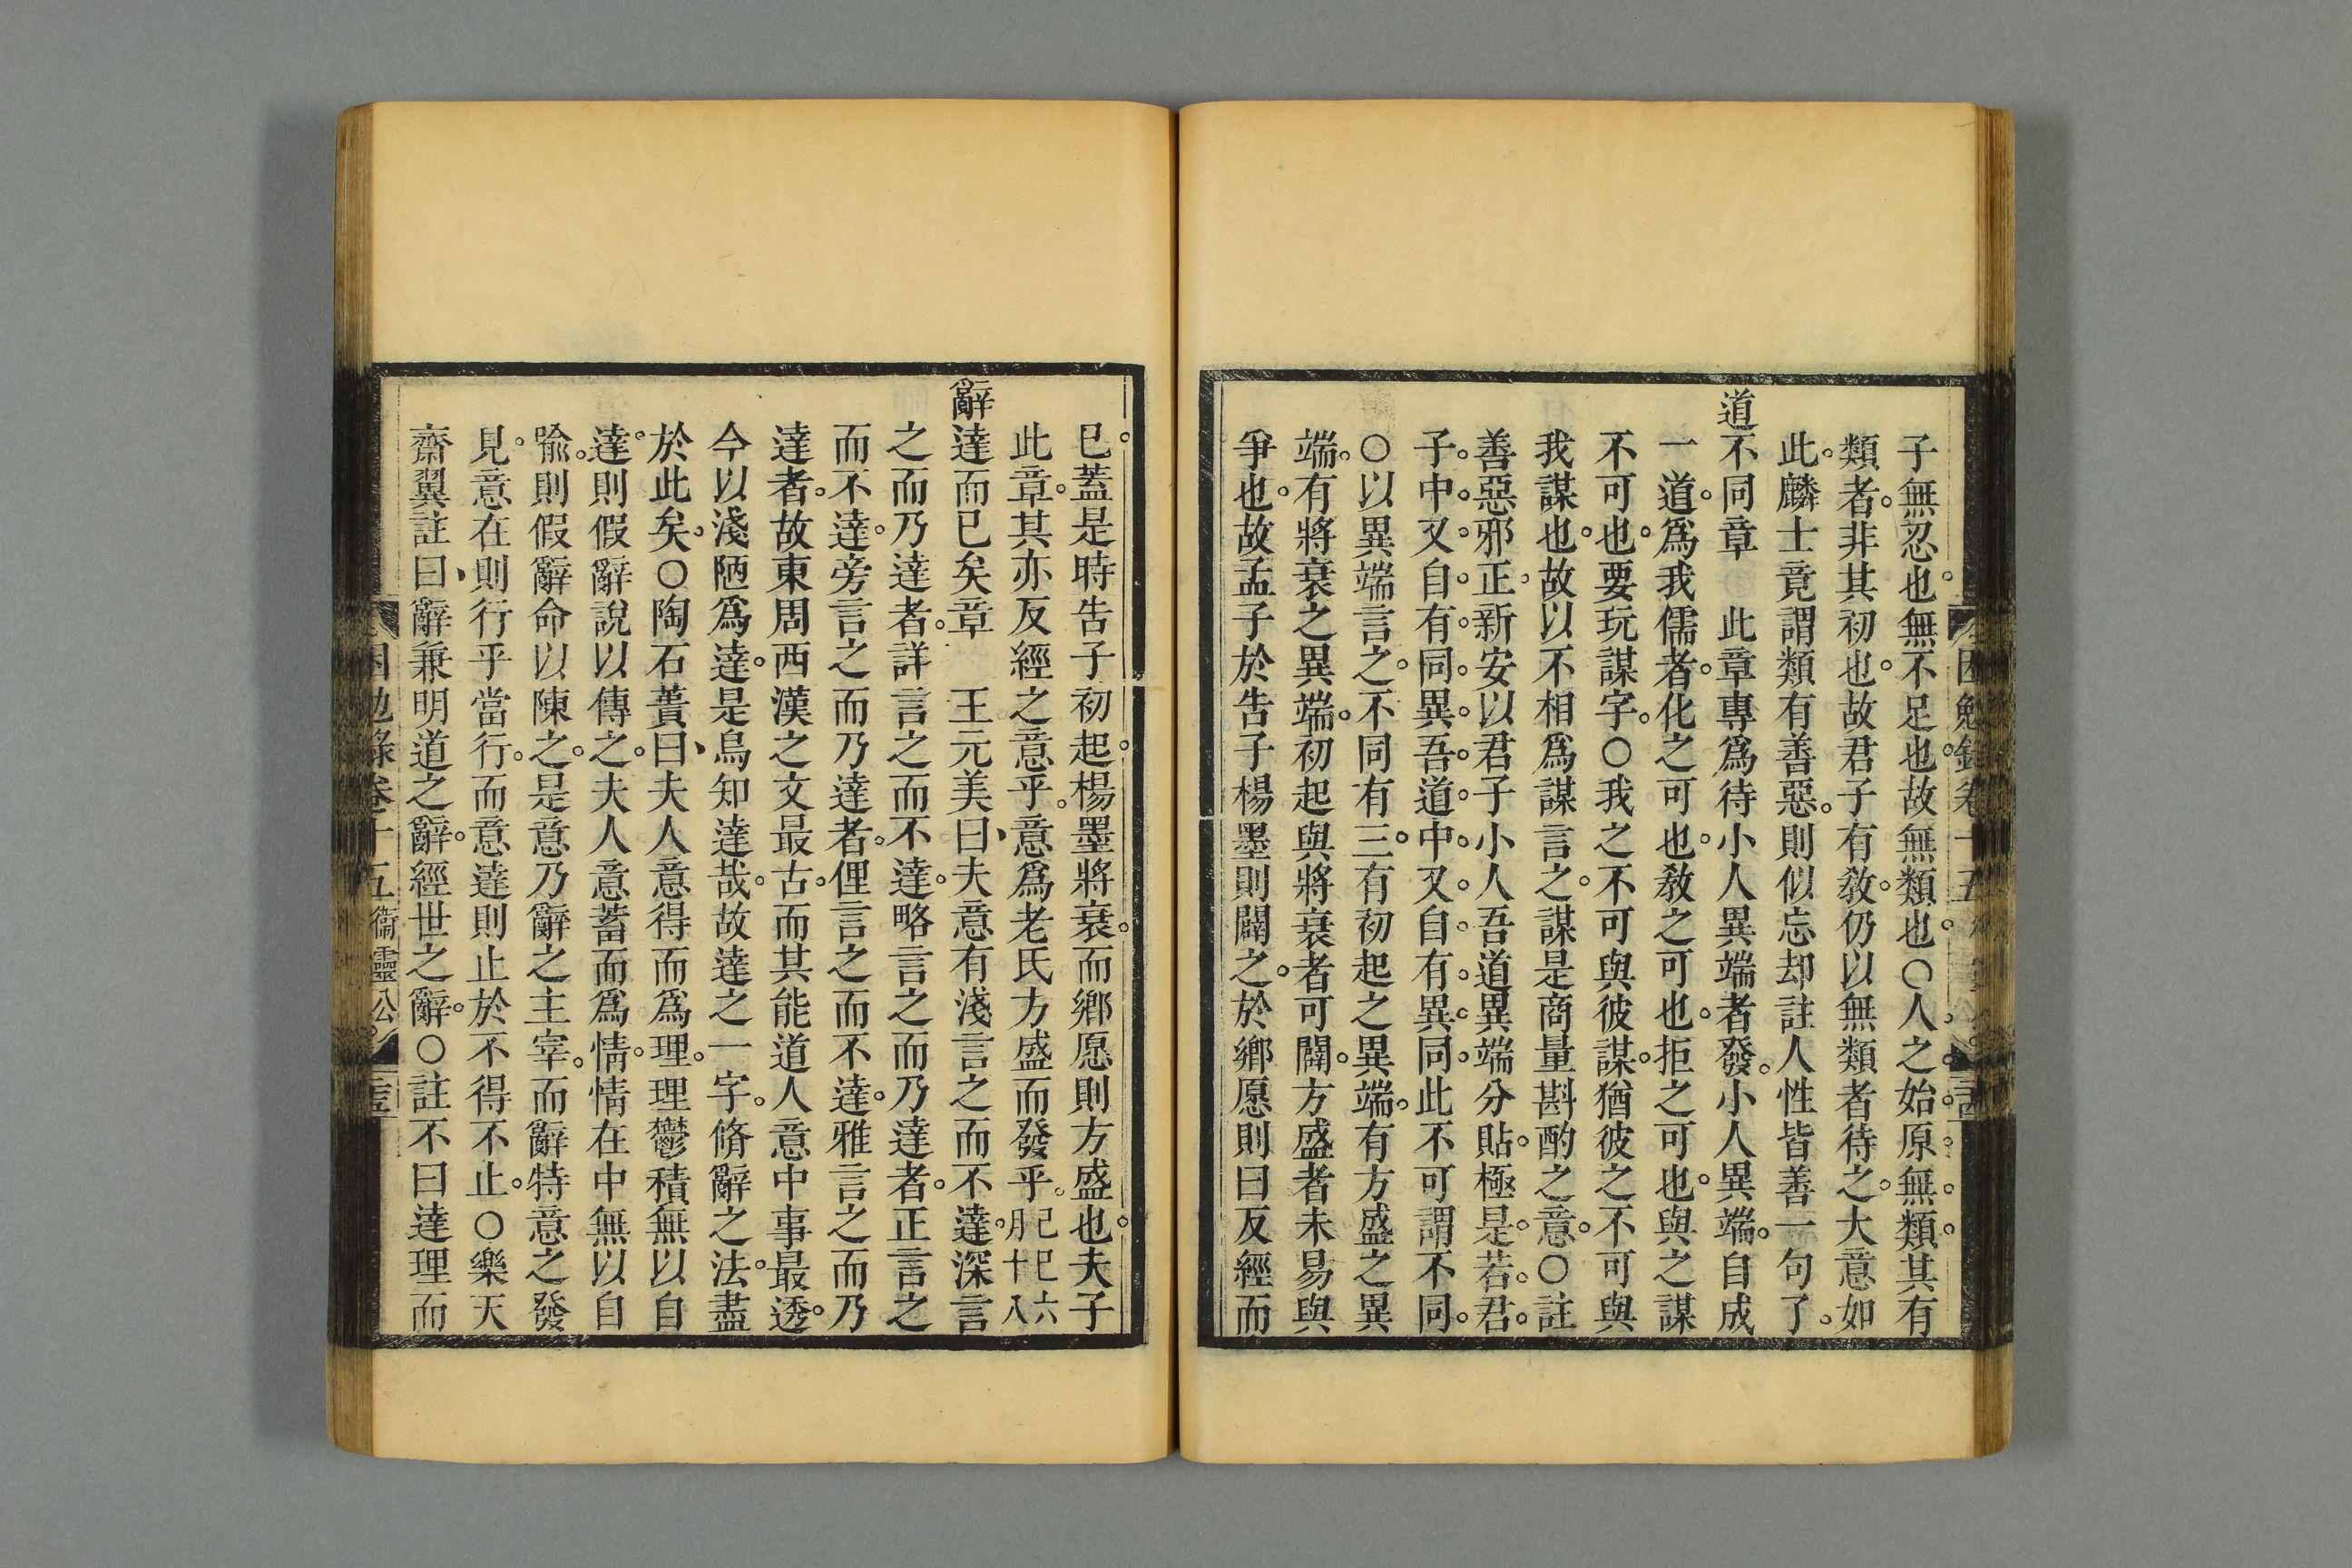 子無忍也。無不足也。故無類也。○人之始。原無類。其有
類者。非其初也。故君子有敎。仍以無類者待之。大意如
此。麟士竟謂類有善惡。則似忘却註人性皆善一句了。
道不同章　此章專爲待小人異端者發。小人異端。自成
一道。爲我儒者。化之可也。敎之可也。拒之可也。與之謀
不可也。要玩謀字。○我之不可與彼謀。猶彼之不可與
我謀也。故以不相爲謀言之。謀是商量斟酌之意。○註
善惡邪正。新安以君子小人吾道異端分貼。極是。若君
子中。又自有同異。吾道中。又自有異同。此不可謂不同。
○以異端言之。不同有三。有初起之異端。有方盛之異
端。有將衰之異端。初起與將衰者可闢。方盛者未易與
爭也。故孟子於告子楊墨則闢之。於鄉愿則曰反經而
已。蓋是時告子初起。楊墨將衰。而鄉愿則方盛也。夫子
此章。其亦反經之意乎。意爲老氏方盛而發乎。己巳六月十八
辭達而已矣章　王元美曰、夫意有淺言之而不達。深言
之而乃達者。詳言之而不達。略言之而乃達者。正言之
而不達。旁言之而乃達者。俚言之而不達。雅言之而乃
達者。故東周西漢之文最古。而其能道人意中事最透。
今以淺陋爲達。是烏知達哉。故達之一字。脩辭之法。盡
於此矣。○陶石蕢曰、夫人意得而爲理。理鬱積無以自
達。則假辭說以傳之。夫人意蓄而爲情。情在中無以自
喩。則假辭命以陳之。是意乃辭之主宰。而辭特意之發
見。意在則行乎當行。而意達則止於不得不止。○樂天
齋翼註曰、辭兼明道之辭。經世之辭。○註不曰達理而
困勉錄卷十五 衞靈公